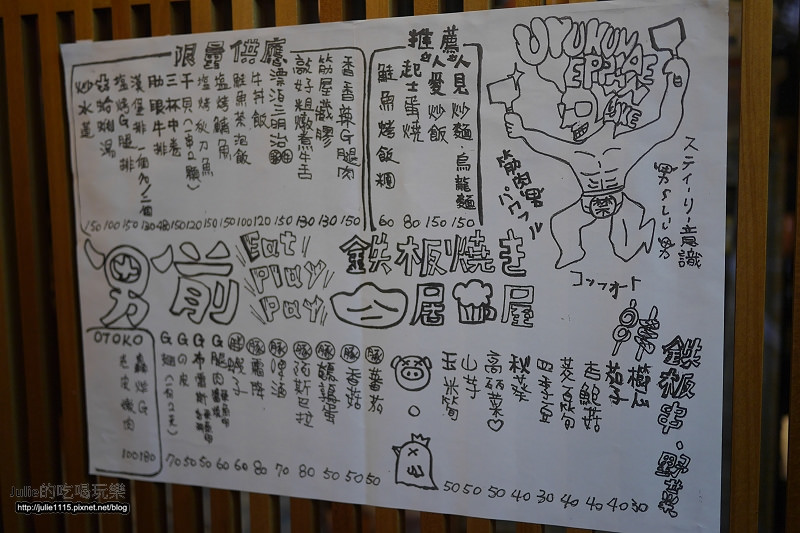 限量供應
香香辣G腿肉 150
筋屋戲膠 130
敲好粗燉煮牛舌 130
漂泊三明治 150
牛丼飯 120
鮭魚茶泡飯 100
塩烤鯖魚 150
塩烤秋刀魚 120
干貝(一串2顆) 150
三杯中卷
肋眼牛排 480
漢堡排 一個 二個
塩烤G腿排 150
蛤蜊湯 100
炒水蓮 150
推薦
人見炒麵·烏龍麵 150
人愛炒飯 150
起士蛋燒 80
鮭魚烤飯糰 60
UYUHUNDE
筋肉男
パワフル
ステイーリー意識
男らしい男
コンフォート
男前
Eat
Play
Pay
鉄板燒き
居酒屋
OTOKO
轟炸G 180
老皮嫩肉 100
豚蕃茄 50
豚香菇 50
豚鵪鶉蛋 50
豚阿斯巴拉 80
豚啤酒 70
豚霜降 80
胖蝦子 60
G腿肉 60
G布雷斯 50
G の皮 50
G翅(一支2支) 70
鉄板串·野菜
樹心 30
茄子 40
杏鮑菇 40
茭白筍 40
四季豆 30
秋葵 40
高麗菜♡ 50
山芋 50
玉米筍 50
Julie的吃喝玩樂
http://julie1115.pixnet.net/blog